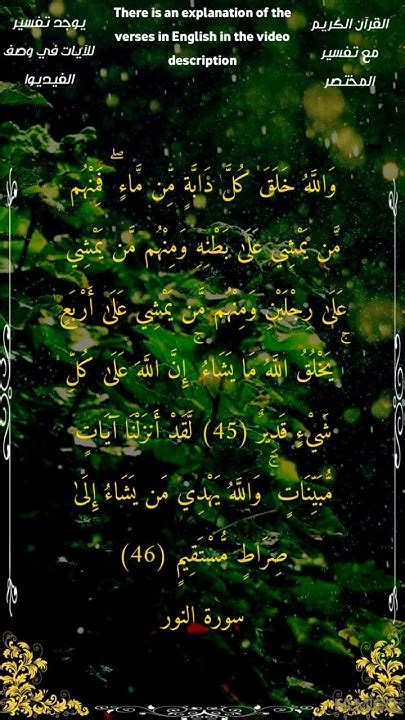 القرآن الكريم
مع تفسير
المختصر
There is an explanation of the
verses in English in the video
description
يوجد تفسير
للآيات في وصف
الفيديوا
وَاللَّهُ خَلَقَ كُلَّ دَابَّةٍ مِّن مَّاءٍ ۖ فَمِنْهُم
مَّن يَمْشِي عَلَىٰ بَطْنِهِ وَمِنْهُم مَّن يَمْشِي
عَلَىٰ رِجْلَيْنِ وَمِنْهُم مَّن يَمْشِي عَلَىٰ أَرْبَعٍ ۚ
يَخْلُقُ اللَّهُ مَا يَشَاءُ ۚ إِنَّ اللَّهَ عَلَىٰ كُلِّ
شَيْءٍ قَدِيرٌ (45) لَّقَدْ أَنزَلْنَا آيَاتٍ
مُّبَيِّنَاتٍ ۚ وَاللَّهُ يَهْدِي مَن يَشَاءُ إِلَىٰ
صِرَاطٍ مُّسْتَقِيمٍ (46)
سورة النور